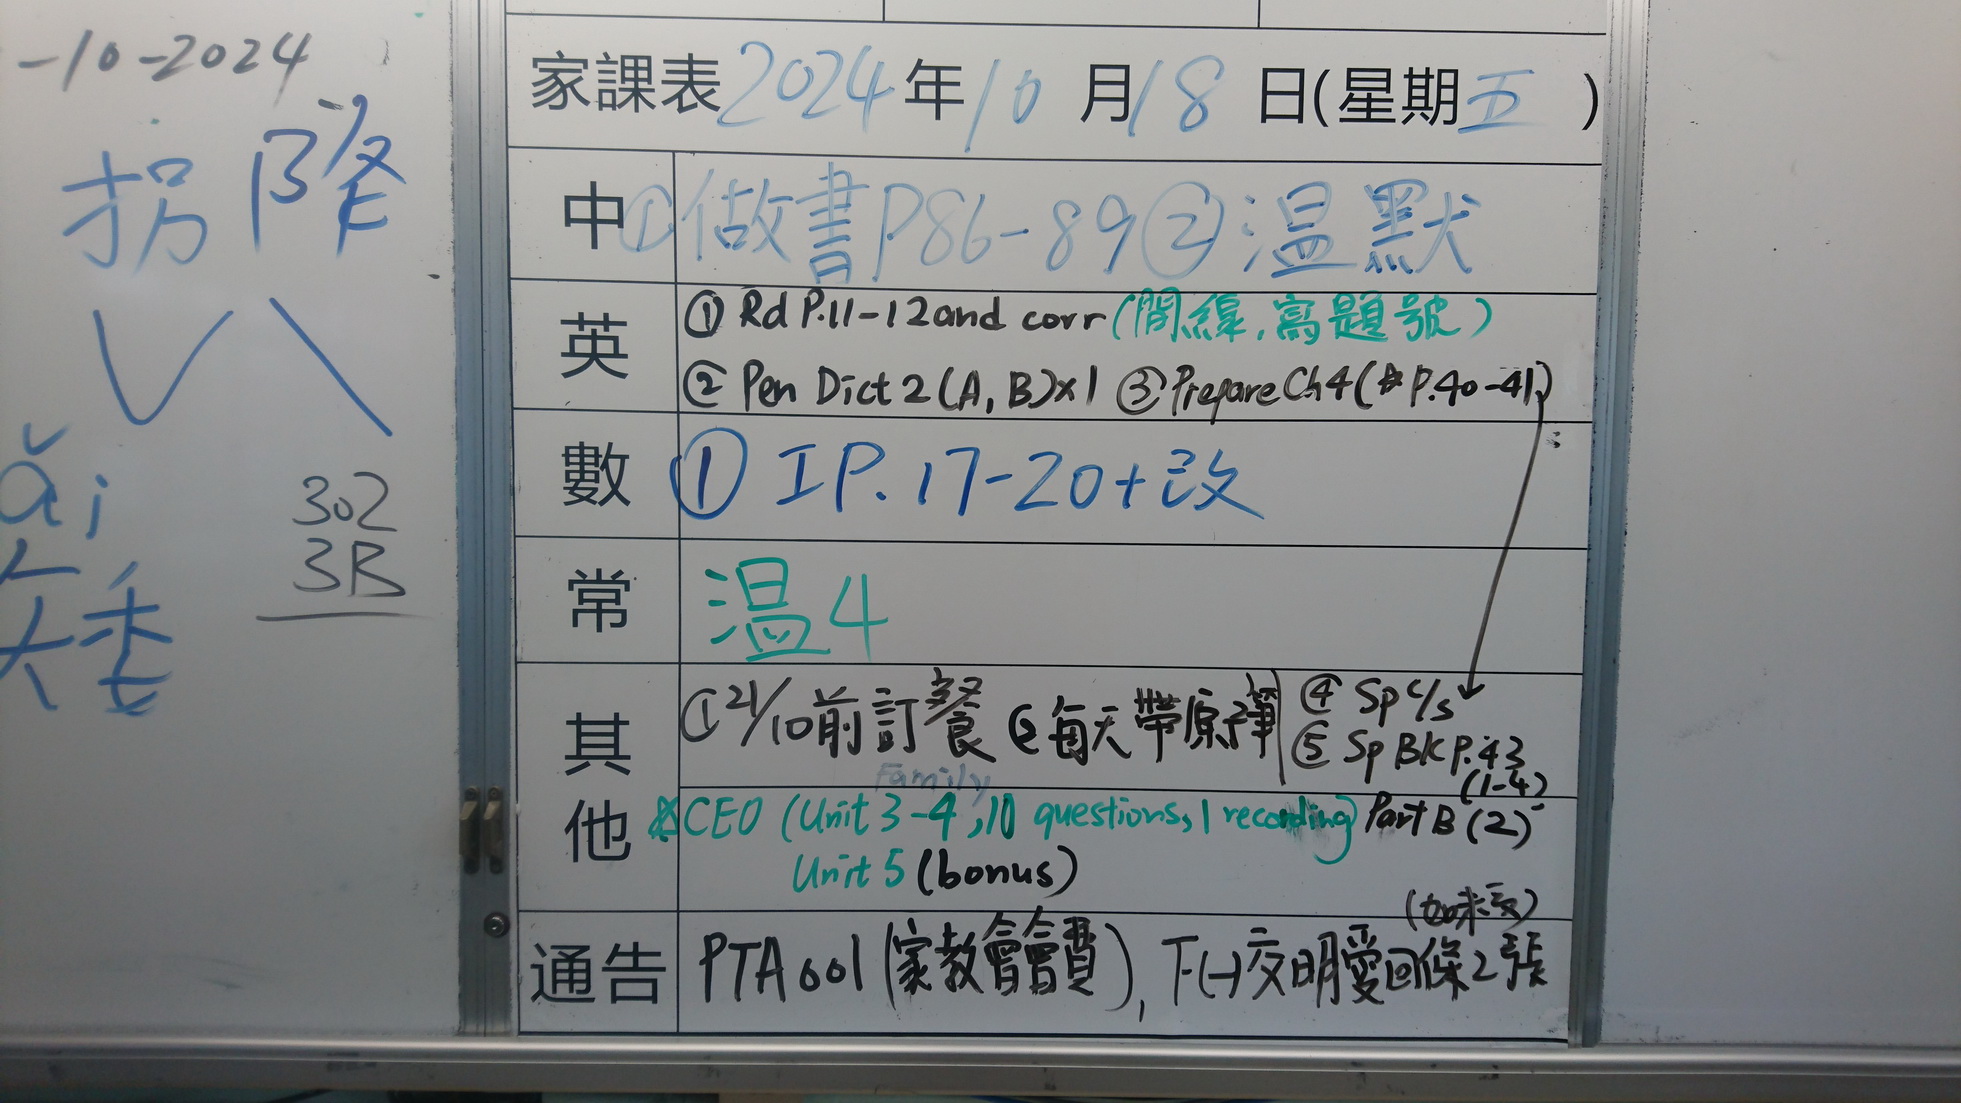 -10-2024
拐 降
ǎi
矮
302
3B
家課表 2024 年 10 月 18 日(星期 五 )
中 ①做書P86-89②温默
英 ① Rd P.11-12 and corr (間線,寫題號)
② Pen Dict 2 (A, B)x1 ③Prepare Ch4( P.40-41)
數 ① IP.17-20+改
常 温4
其他 ①21/10前訂餐 ②每天帶原子筆 ④ Sp c/s
⑤ Sp BK P.43
(1-4)
Family
CEO (Unit 3-4, 10 questions, 1 recording) Part B (2)
Unit 5 (bonus)
(如未交)
通告 PTA001 (家教會會費), 下(一)交明愛回條2張